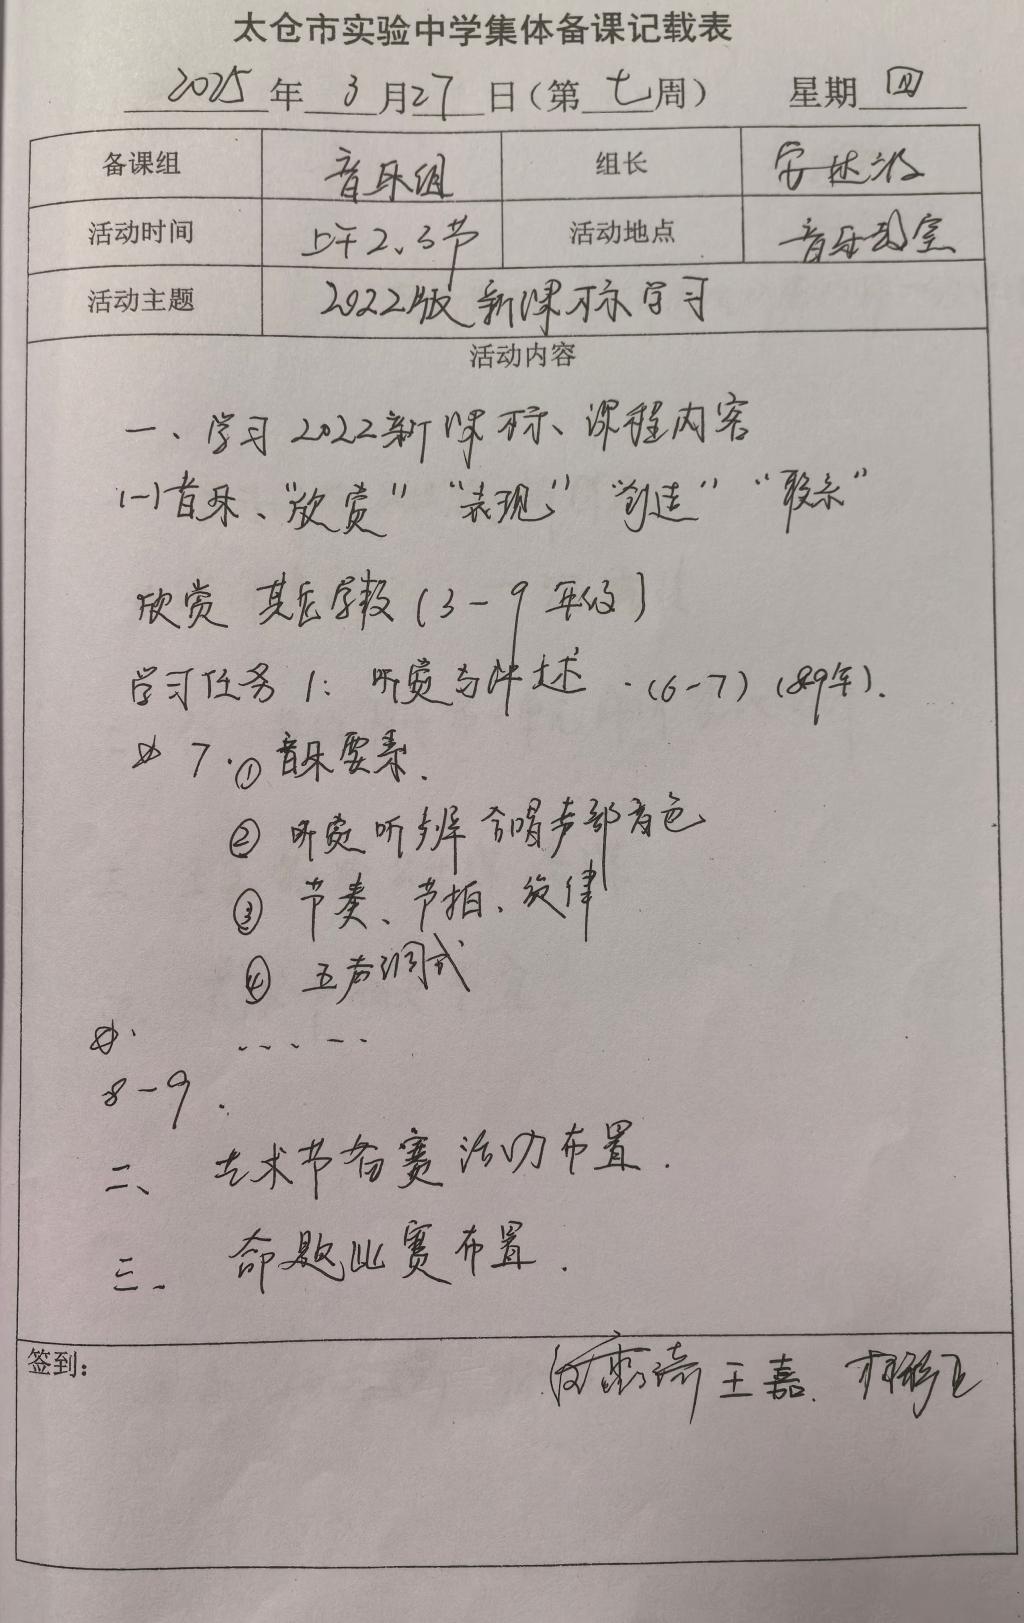 太仓市实验中学集体备课记载表
2025年3月27日（第七周） 星期四
备课组 音乐组 组长
活动时间 上午2、3节 活动地点 音乐教室
活动主题 2022版新课标学习
活动内容
一、学习2022新课标、课程内容
(一)音乐、“欣赏”“表现”“创造”“联系”
欣赏 其它学段(3-9年级)
学习任务1: 听赏与评述·(6-7)(89年).
7.①音乐要素.
②听赏听辨合唱声部音色
③节奏、节拍、旋律
④五声调式
……
8-9.
二、艺术节备赛活动布置.
三、命题比赛布置.
签到: 王嘉.